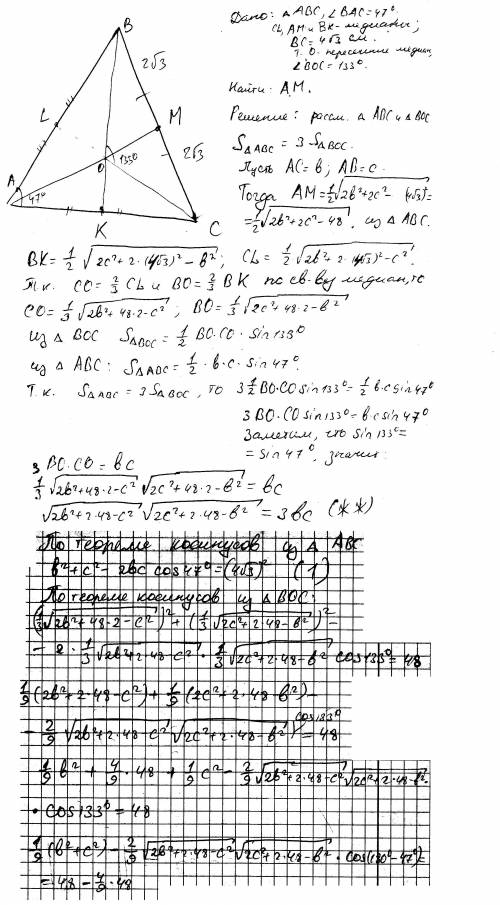 Дано: △ABC, ∠BAC=47°
CL, AM и BK - медианы;
BC = 4√3 см.
т. O - пересечение медиан,
∠BOC = 133°.
Найти: AM.
Решение: рассм. △ ABC и △BOC
S△ABC = 3 S△BOC.
Пусть AC=b; AB=c.
Тогда AM=1/2√(2b²+2c²-(4√3)²)=
=1/2√(2b²+2c²-48), из △ ABC.
B
2√3
L
M
2√3
O
133°
A
47°
K
C
BK = 1/2 √(2c²+2·(4√3)²-b²); CL = 1/2 √(2b²+2·(4√3)²-c²).
Т.к. CO=2/3 CL и BO=2/3 BK по св-ву медиан, то
CO=1/3√(2b²+48·2-c²); BO=1/3√(2c²+48·2-b²)
из △ BOC S△BOC = 1/2 BO·CO·sin133°
из △ ABC: S△ABC = 1/2·b·c·sin47°.
Т.к. S△ABC = 3S△BOC, то 3·1/2 BO·CO sin133°=1/2 b·c sin47°
3 BO·CO sin133°=b·c sin47°
Заметим, что sin133°=
= sin 47°, значит:
3 BO·CO = bc
1/3 √(2b²+48·2-c²) √(2c²+48·2-b²) = bc
√(2b²+2·48-c²) √(2c²+2·48-b²) = 3bc (**)
По теореме косинусов из △ ABC
b²+c²-2bc cos47°=(4√3)² (1)
По теореме косинусов из △BOC:
(1/3√(2b²+48·2-c²))²+(1/3√(2c²+2·48-b²))²-
- 2·1/3√(2b²+2·48-c²)·1/3√(2c²+2·48-b²) cos133°=48
1/9(2b²+2·48-c²)+1/9(2c²+2·48-b²)-
- 2/9 √(2b²+2·48-c²) √(2c²+2·48-b²) cos133° = 48
1/9 b² + 4/9·48 + 1/9 c² - 2/9 √(2b²+2·48-c²) √(2c²+2·48-b²)·
· cos133° = 48
1/9 (b²+c²) - 2/9 √(2b²+2·48-c²) √(2c²+2·48-b²) · cos(180°-47°)=
= 48 - 4/9·48